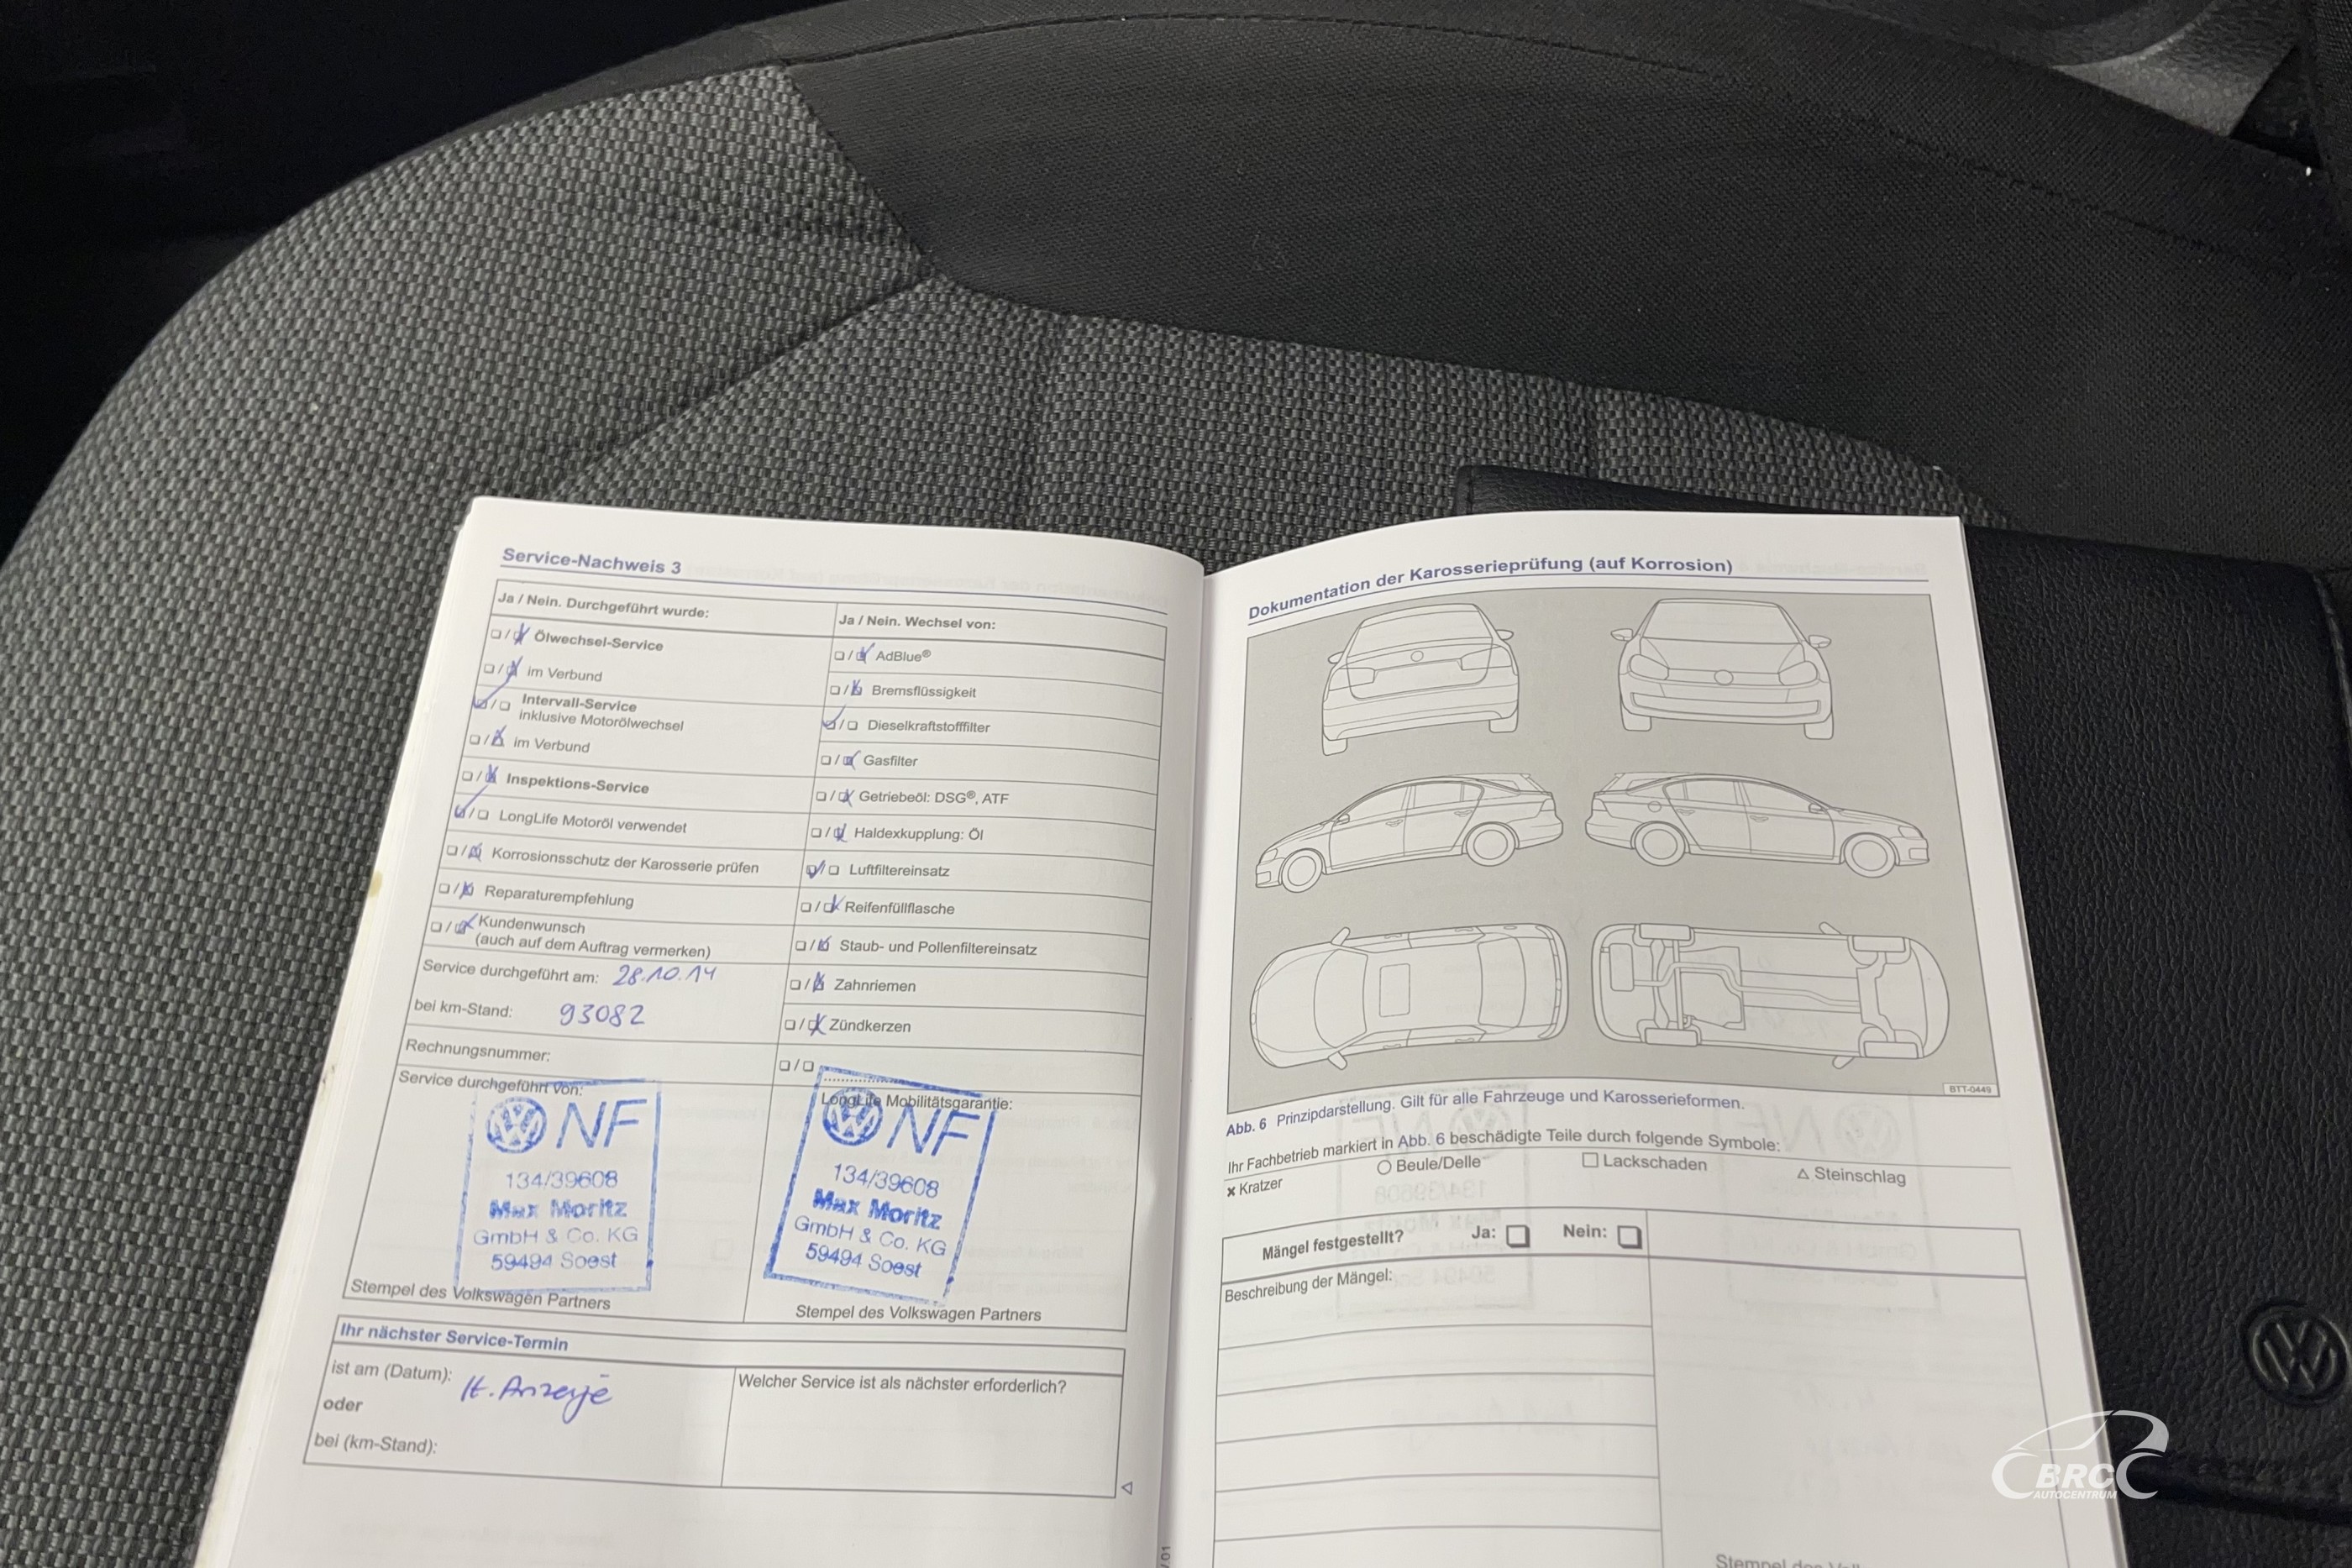 Service-Nachweis 3
Ja / Nein. Durchgeführt wurde:
Ölwechsel-Service
im Verbund
Intervall-Service
inklusive Motorölwechsel
im Verbund
Inspektions-Service
LongLife Motoröl verwendet
Korrosionsschutz der Karosserie prüfen
Reparaturempfehlung
Kundenwunsch
(auch auf dem Auftrag vermerken)
Service durchgeführt am: 28.10.14
bei km-Stand: 93082
Rechnungsnummer:
Service durchgeführt von:
NF
134/39608
Max Moritz
GmbH & Co. KG
59494 Soest
Stempel des Volkswagen Partners
Ja / Nein. Wechsel von:
AdBlue®
Bremsflüssigkeit
Dieselkraftstofffilter
Gasfilter
Getriebeöl: DSG®, ATF
Haldexkupplung: Öl
Luftfiltereinsatz
Reifenfüllflasche
Staub- und Pollenfiltereinsatz
Zahnriemen
Zündkerzen
LongLife Mobilitätsgarantie:
NF
134/39608
Max Moritz
GmbH & Co. KG
59494 Soest
Stempel des Volkswagen Partners
Ihr nächster Service-Termin
ist am (Datum): lt. Anzeige
oder
bei (km-Stand):
Welcher Service ist als nächster erforderlich?
Dokumentation der Karosserieprüfung (auf Korrosion)
BTT-0449
Abb. 6 Prinzipdarstellung. Gilt für alle Fahrzeuge und Karosserieformen.
Ihr Fachbetrieb markiert in Abb. 6 beschädigte Teile durch folgende Symbole:
Kratzer
Beule/Delle
Lackschaden
Steinschlag
Mängel festgestellt? Ja: Nein:
Beschreibung der Mängel:
Stempel des
BRC
AUTOCENTRUM